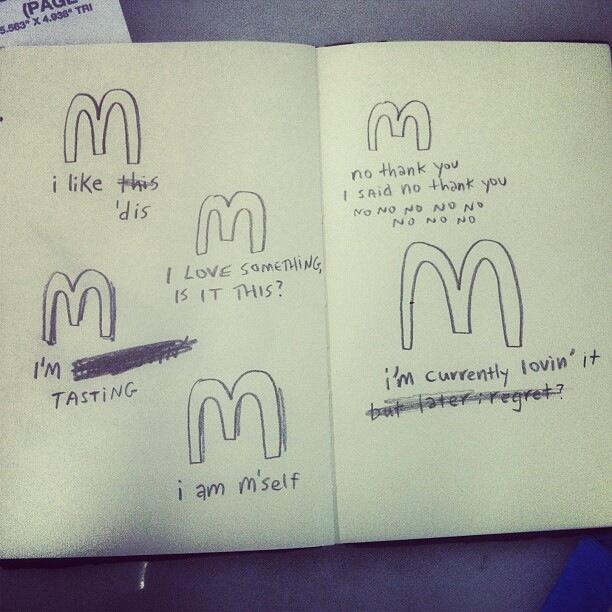 (PAGE
5.563" X 4.938" TRI
i like this
'dis
I LOVE SOMETHING,
IS IT THIS?
I'M
TASTING
i am m'self
no thank you
I said no thank you
NO NO NO NO NO
NO NO NO
i'm currently lovin' it
but later i regret?